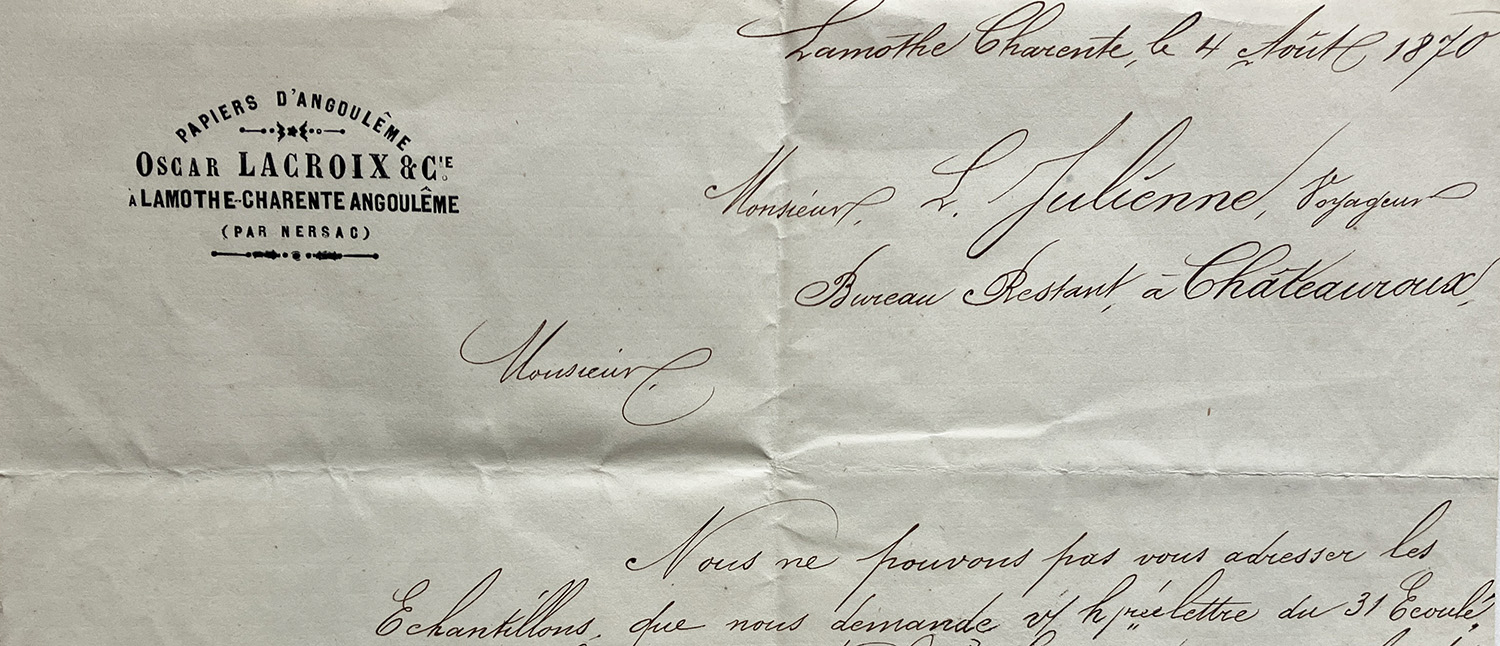 Lamothe Charente, le 4 Août 1870
PAPIERS D'ANGOULÊME
OSCAR LACROIX & CIE
À LAMOTHE-CHARENTE ANGOULÊME
(PAR NERSAC)
Monsieur, L. Julienne, Voyageur
Bureau Restant, à Châteauroux,
Monsieur,
Nous ne pouvons pas vous adresser les
Echantillons, que nous demande v/ lettre du 31 Ecoulé,